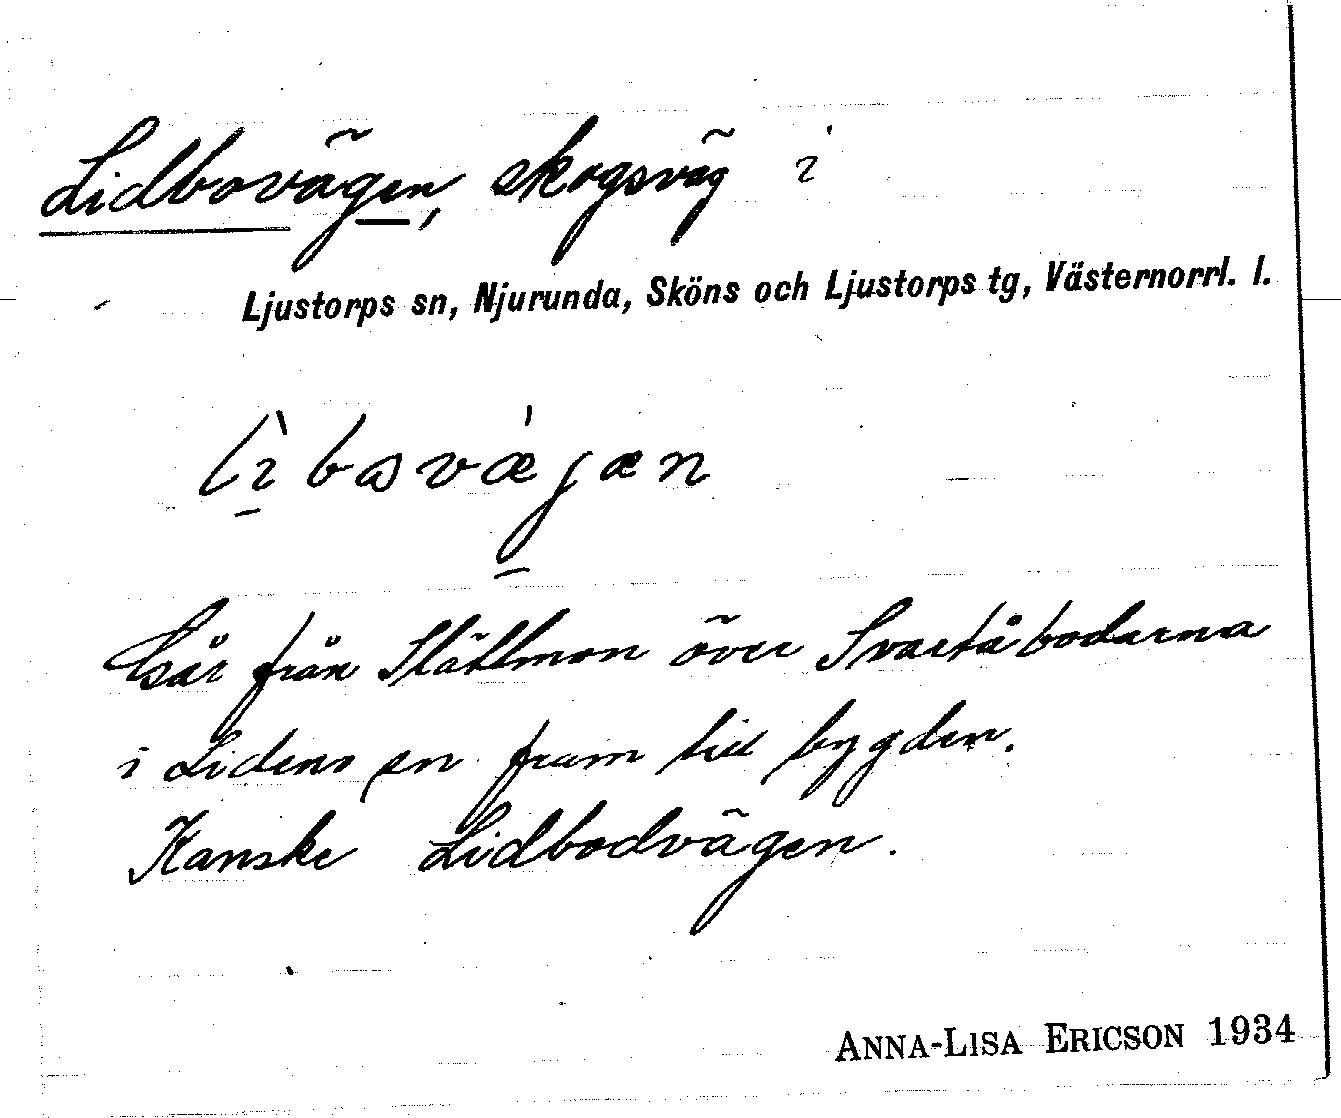 Lidbovägen, skogsväg i
Ljustorps sn, Njurunda, Sköns och Ljustorps tg, Västernorrl. l.
lìbsvǽjæn
Går från Slättmon över Svartåbodarna
i Lidens sn fram till bygden.
Kanske Lidbodvägen.
ANNA-LISA ERICSON 1934